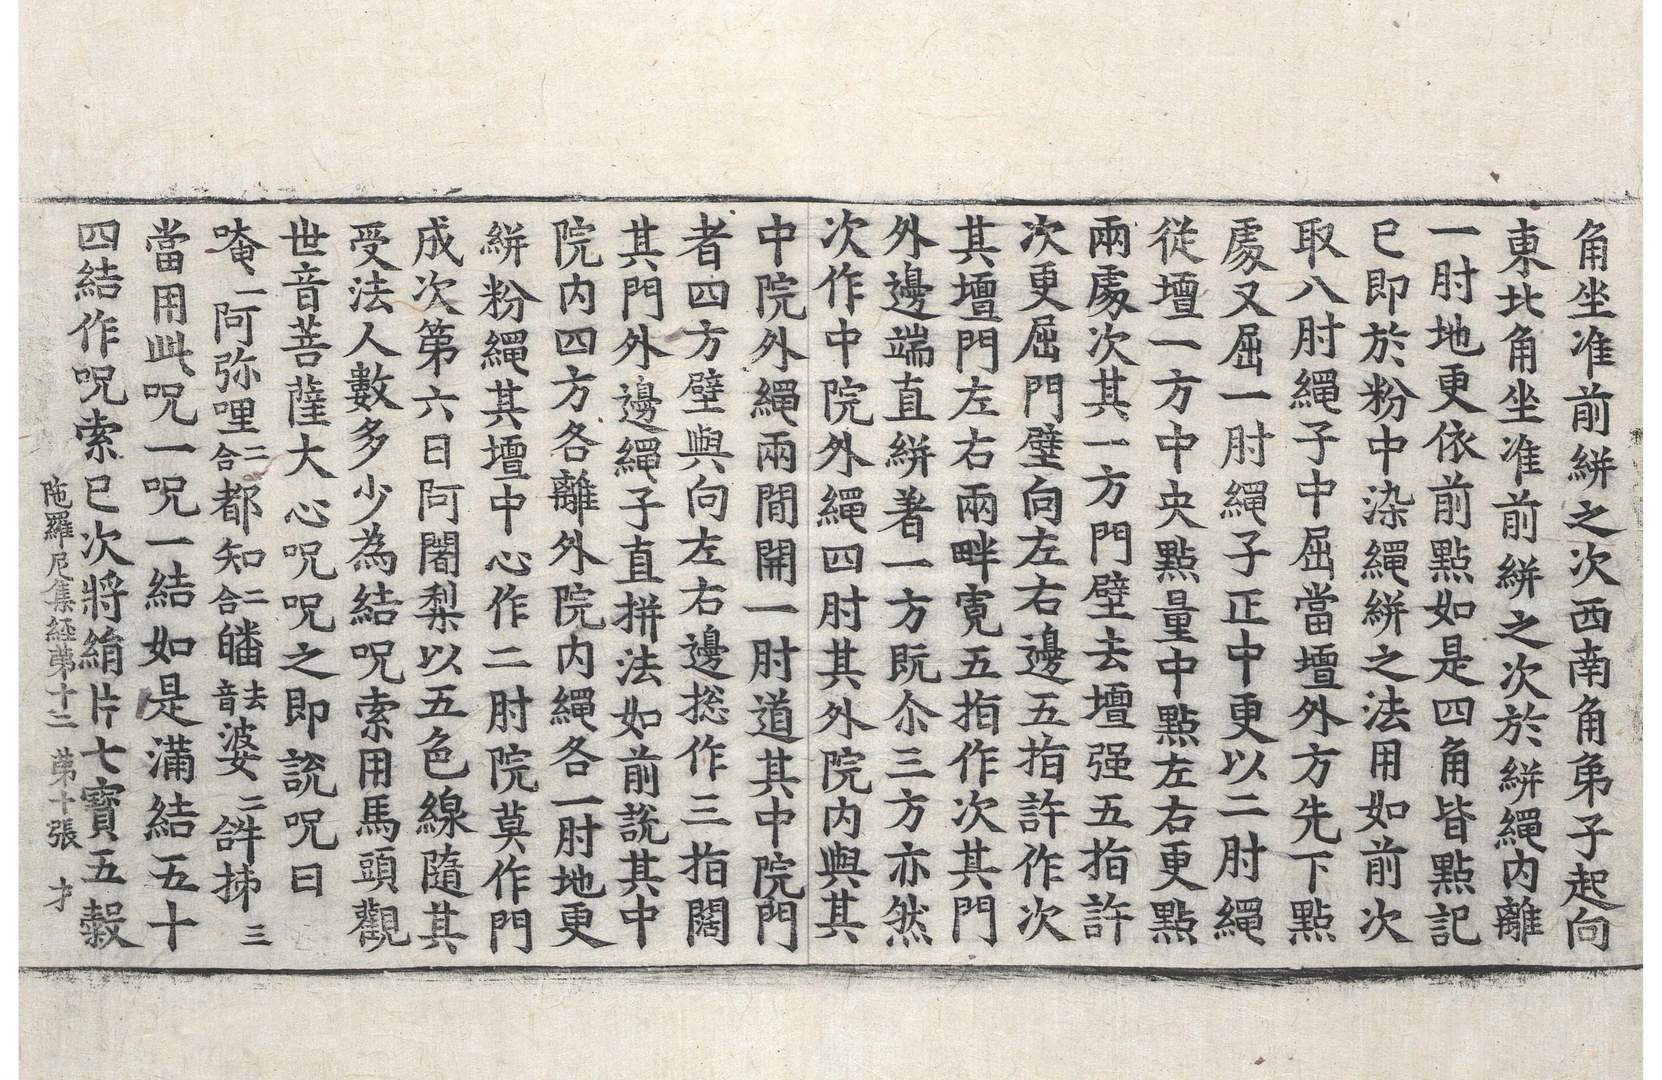 角坐准前絣之次西南角弟子起向
東北角坐准前絣之次於絣繩内離
一肘地更依前點如是四角皆點記
已即於粉中染繩絣之法用如前次
取八肘繩子中屈當壇外方先下點
處又屈一肘繩子正中更以二肘繩
從壇一方中央點量中點左右更點
兩處次其一方門壁去壇强五指許
次更屈門壁向左右邊五指許作次
其壇門左右兩畔寬五指作次其門
外邊端直絣著一方既尒三方亦然
次作中院外繩四肘其外院内與其
中院外繩兩間開一肘道其中院門
者四方壁與向左右邊揔作三指闊
其門外邊繩子直拼法如前說其中
院内四方各離外院内繩各一肘地更
絣粉繩其壇中心作二肘院莫作門
成次第六日阿闍梨以五色線隨其
受法人數多少為結呪索用馬頭觀
世音菩薩大心呪呪之即說呪曰
唵一阿弥哩二合都知二合皤去音婆二𤙖抺三
當用此呪一呪一結如是滿結五十
四結作呪索已次將絹片七寶五穀
陁羅尼集経苐十二 苐十張 才